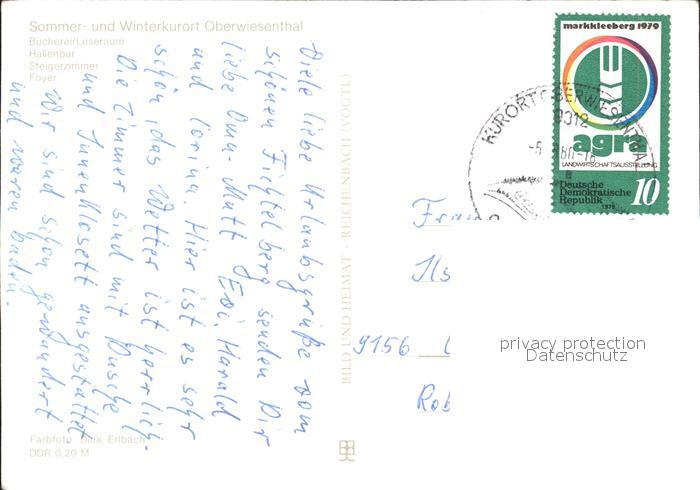 Sommer- und Winterkurort Oberwiesenthal
Bücherei/Leseraum
Hallenbar
Steigerzimmer
Foyer
Viele liebe Urlaubsgrüße vom
schönen Fichtelberg senden Dir
liebe Oma - Mutti Evi, Harald
und Corina. Hier ist es sehr
schön, das Wetter ist herrlich.
Die Zimmer sind mit Dusche
und Innenklosett ausgestattet.
Wir sind schon gewandert
und waren baden.
Farbfoto: Dick, Erlbach
DDR 0,20 M
BILD UND HEIMAT · REICHENBACH (VOGTL)
markkleeberg 1979
agra
LANDWIRTSCHAFTSAUSSTELLUNG
Deutsche
Demokratische
Republik
10
1979
KURORT OBERWIESENTHAL
9312
Frau
9156
privacy protection
Datenschutz